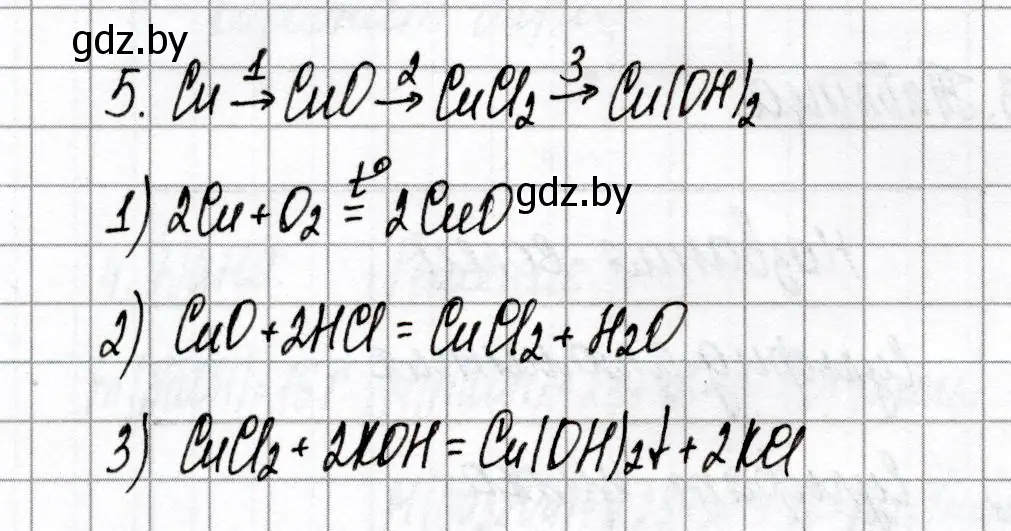 gdz.by
5. Cu →¹ CuO →² CuCl₂ →³ Cu(OH)₂
1) 2Cu + O₂ =^{t°} 2CuO
gdz.by
2) CuO + 2HCl = CuCl₂ + H₂O
3) CuCl₂ + 2KOH = Cu(OH)₂↓ + 2KCl